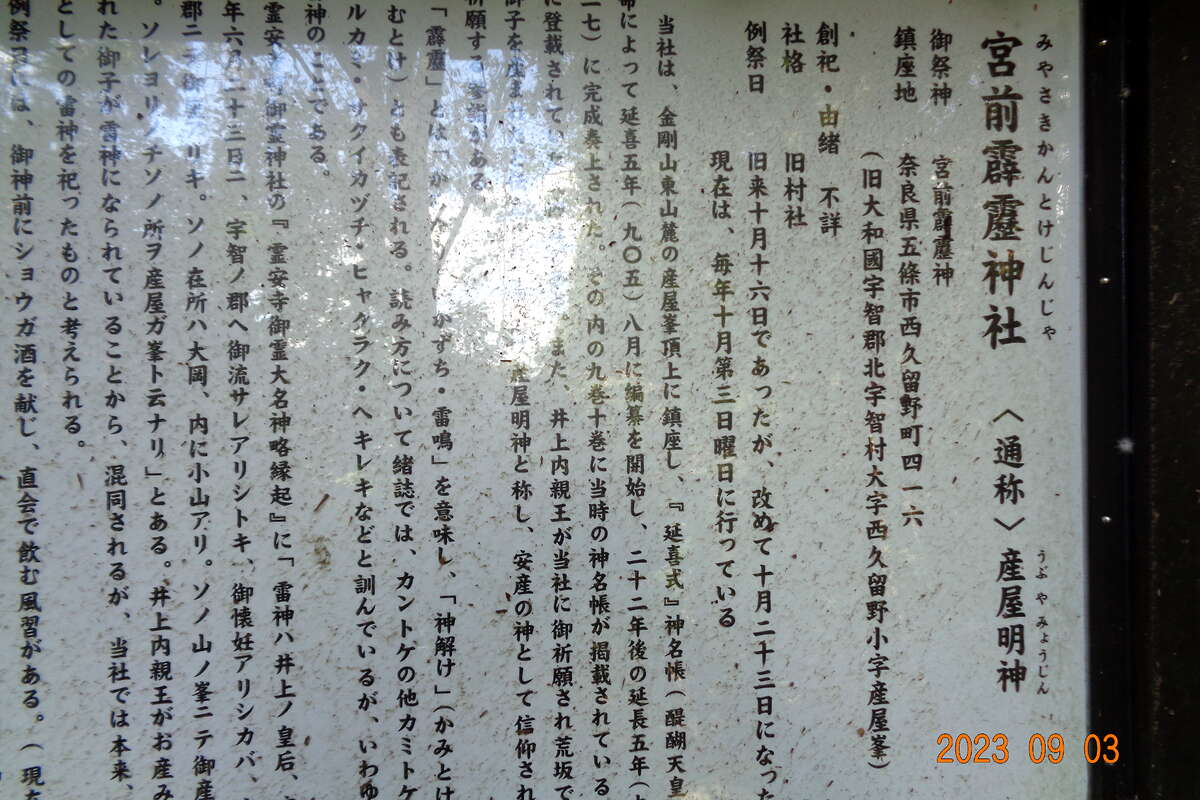 みやさきかんとけじんじゃ
宮前霹靂神社 〈通称〉産屋明神
うぶやみょうじん
御祭神 宮前霹靂神
鎮座地 奈良県五條市西久留野町四一六
(旧大和國宇智郡北宇智村大字西久留野小字産屋峯)
創祀・由緒 不詳
社格 旧村社
例祭日 旧来十月十六日であったが、改めて十月二十三日になった
現在は、毎年十月第三日曜日に行っている
当社は、金剛山東山麓の産屋峯頂上に鎮座し、『延喜式』神名帳(醍醐天皇
命によって延喜五年(九〇五)八月に編纂を開始し、二十二年後の延長五年(
二七)に完成奏上された。その内の九巻十巻に当時の神名帳が掲載されている
に登載されてい また、井上内親王が当社に御祈願され荒坂で
御子を産まれ 産屋明神と称し、安産の神として信仰され
祈願する がある。
「霹靂」とは「か いかずち・雷鳴」を意味し、「神解け」(かみとけ
むとけ)とも表記される。読み方について緒誌では、カントゲの他カミトケ
ルカミ・サクイカヅチ・ヒャクラク・ヘキレキなどと訓んでいるが、いわゆ
神のことである。
霊安寺町御霊神社の『霊安寺御霊大名神略縁起』に「雷神ハ井上ノ皇后、
年六月二十三日ニ、宇智ノ郡へ御流サレアリシトキ、御懐妊アリシカバ、
郡ニテ御 リキ。ソノ在所ハ大岡、内に小山アリ。ソノ山ノ峯ニテ御産
。ソレヨリノチソノ所ヲ産屋ガ峯ト云ナリ」とある。井上内親王がお産み
れた御子が雷神になられていることから、混同されるが、当社では本来、
としての雷神を祀ったものと考えられる。
例祭日には、御神前にショウガ酒を献じ、直会で飲む風習がある。(現在
2023 09 03